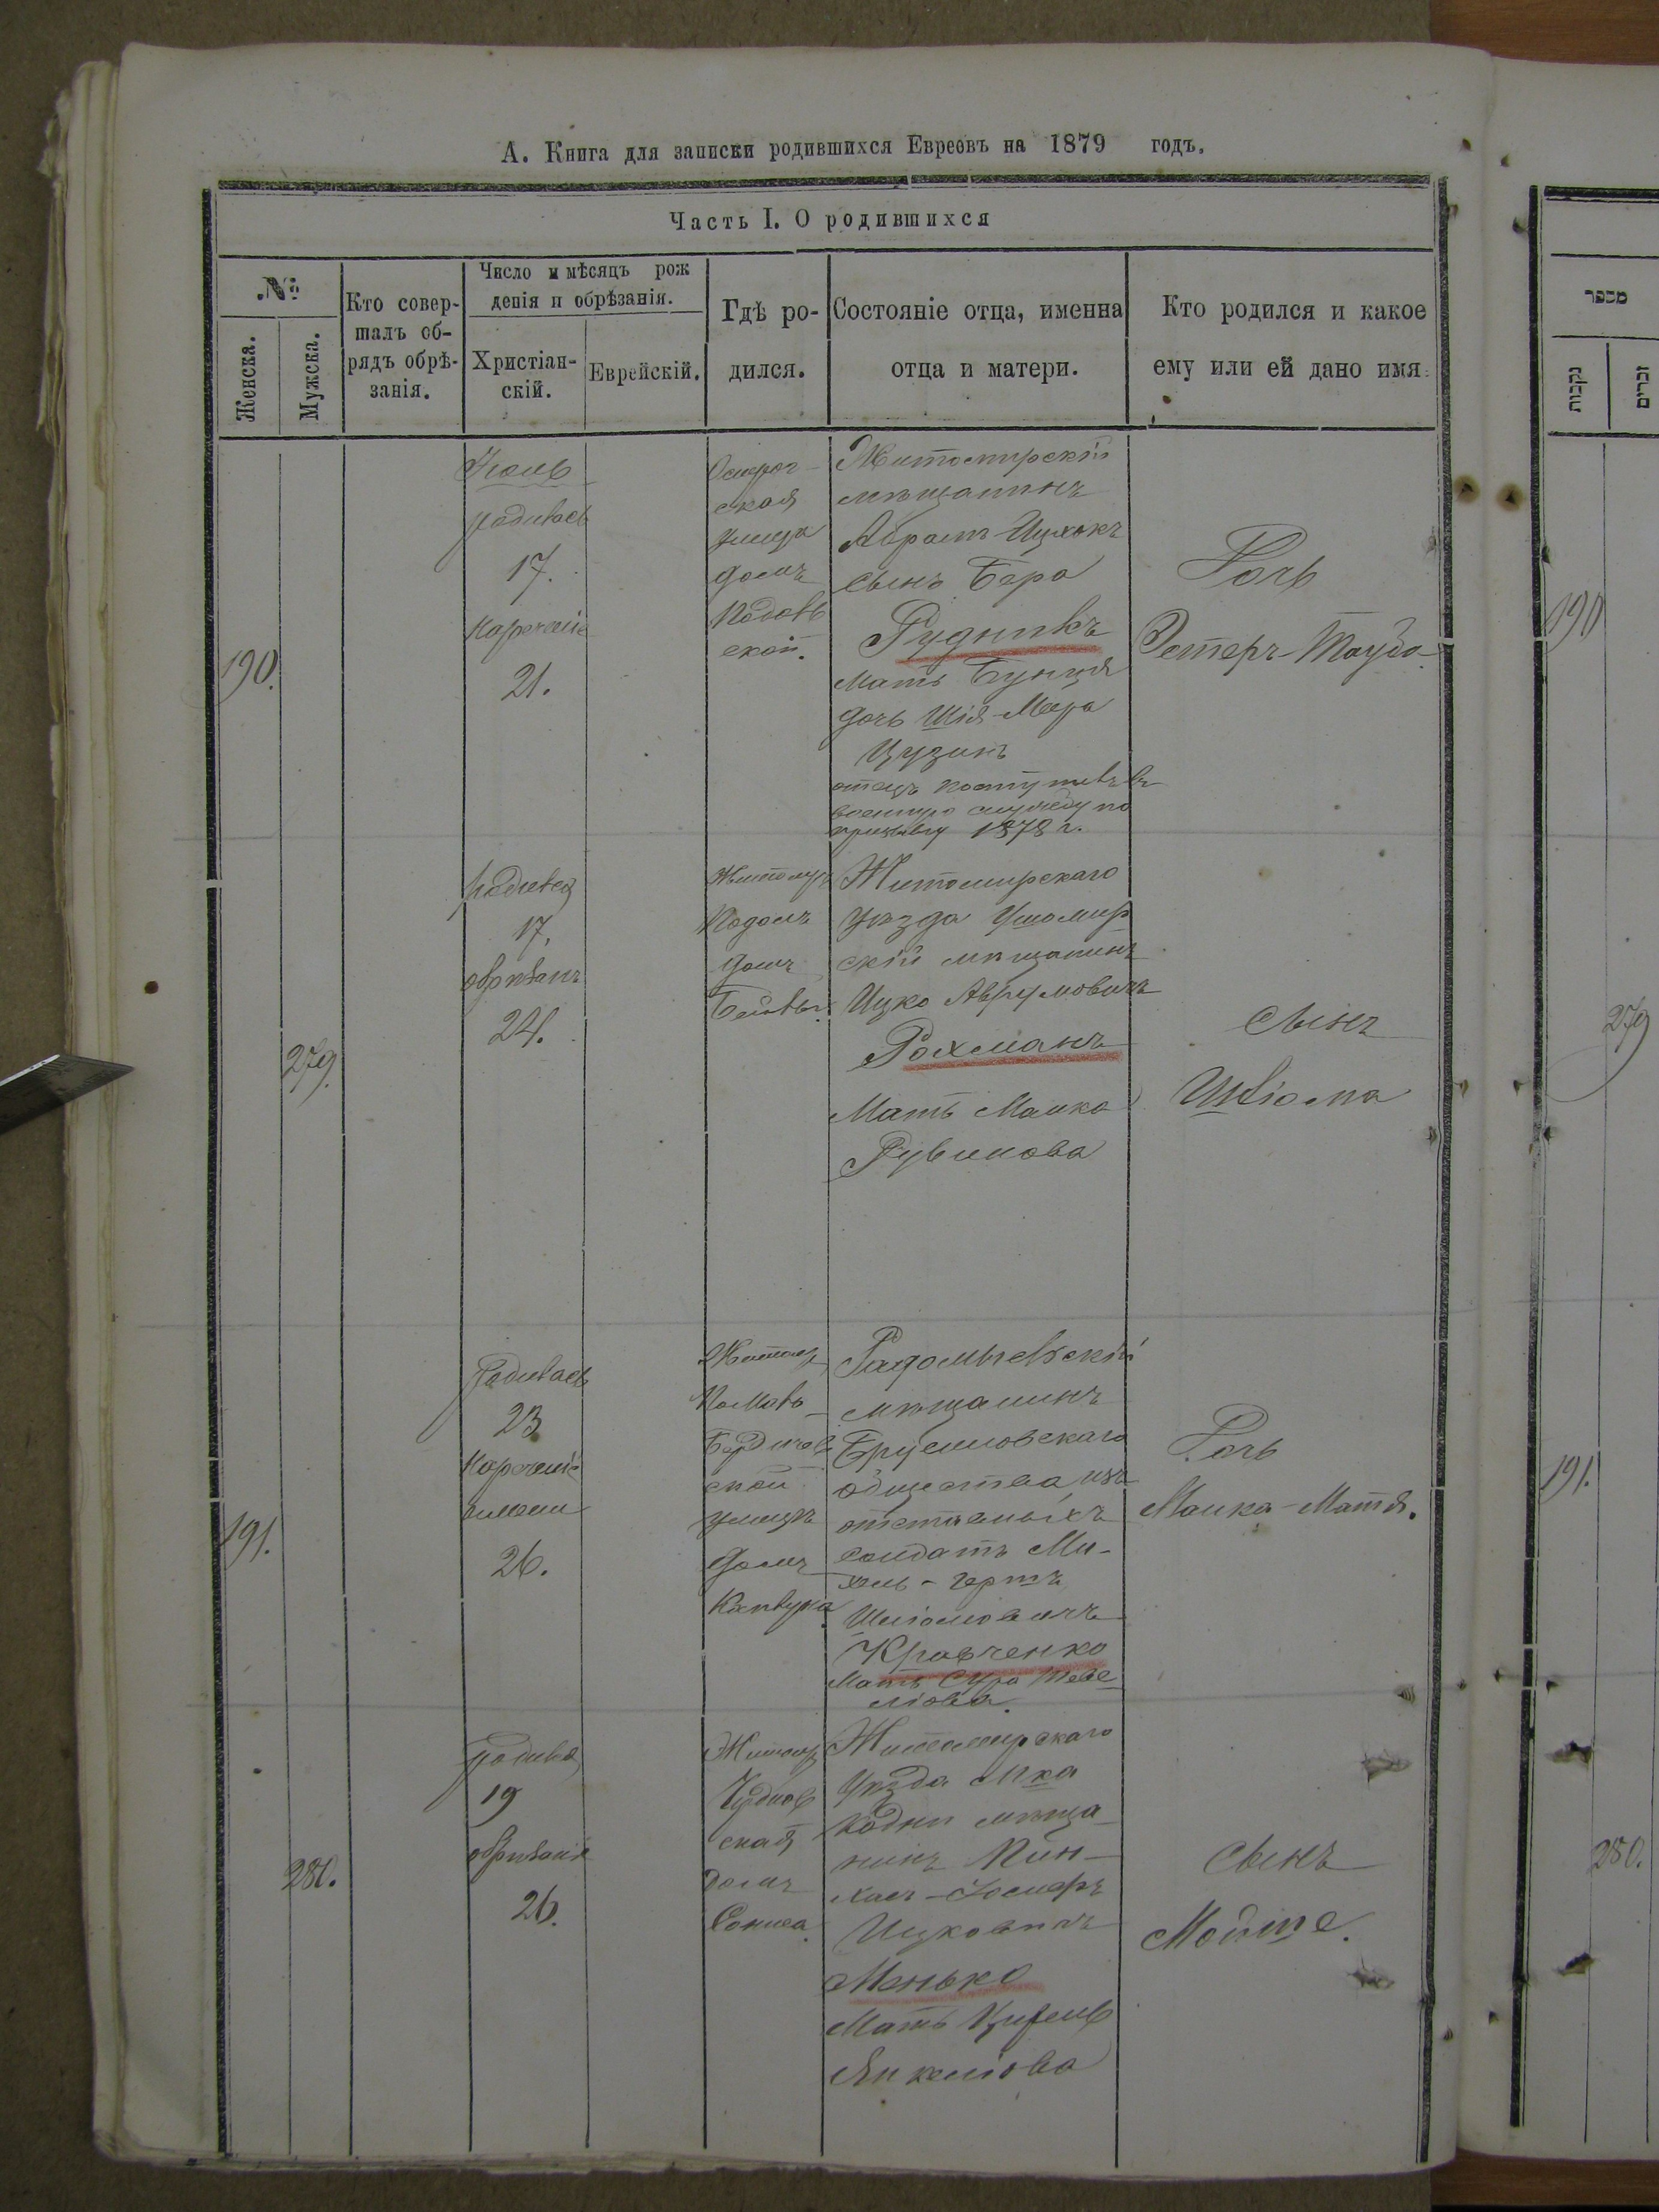 А. Книга для записки родившихся Евреовъ на 1879 годъ.
Часть I. О родившихся
№
Женска.
Мужска.
Кто совер-
шалъ об-
рядъ обрѣ-
занія.
Число и мѣсяцъ рож
денія и обрѣзанія.
Христіан-
скій.
Еврейскій.
Гдѣ ро-
дился.
Состояніе отца, именна
отца и матери.
Кто родился и какое
ему или ей дано имя.
190.
Іюль
родилась
17.
наречение
21.
Острог-
ская
улица
домъ
скій.
Житомирскій
мѣщанинъ
Абрамъ-Ицхокъ
сынъ Бера
Рудникъ
Мать Бунця
дочь Шія-Меера
Цузинъ
отецъ поступивъ въ
военную службу по
призыву 1878 г.
Дочь
Эстеръ-Тауба
279.
родился
17.
обрѣзанъ
24.
Житомиръ
Подолъ
домъ
Житомирскаго
уѣзда Ушомир
скій мѣщанинъ
Ицко Аврумовичъ
Рохманъ
Мать Малка
Рувинова
сынъ
Шліома
191.
Родилась
23
Наречение
имени
26.
Житомир
Бердичев
ской
улицѣ
домъ
Радомысльскій
мѣщанинъ
Брусиловскаго
общества изъ
отставныхъ
солдатъ Ми-
хель-Герть
Шліомовичъ
Кравченко
Мать Сура Теве
ліова.
Дочь
Малка-Матля.
280.
родился
19
обрѣзаніе
26.
Житомир
Чуднов
ская
домъ
Житомирскаго
Уѣзда м-ка
Кодни мѣща
нинъ Пин-
хасъ-Іосифъ
Ицковичъ
Менько
Мать Цирель
Янкеліова
сынъ
Мойше.
מספר
נקבות
זכרים
190
279
191.
280.